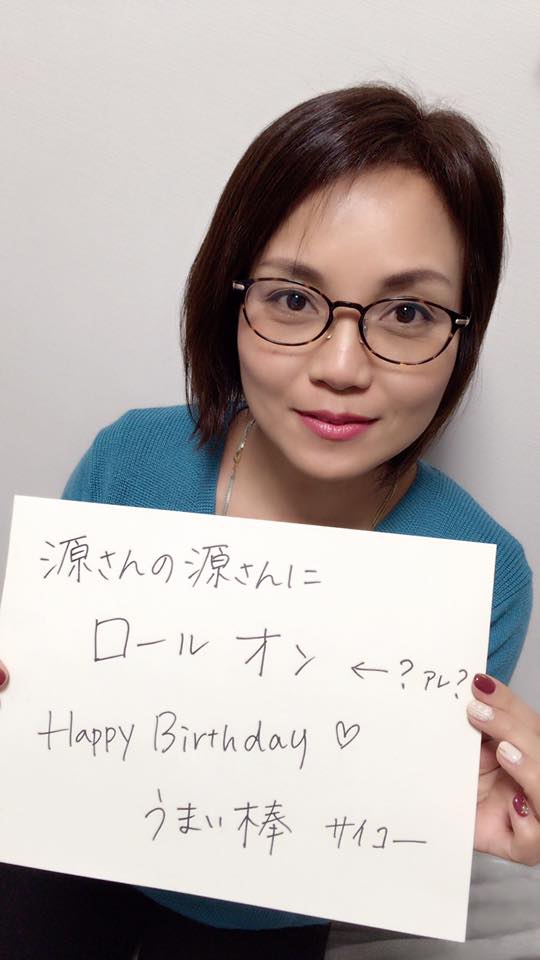 源さんの源さんに
ロール オン ←?アレ?
Happy Birthday ♡
うまい棒 サイコー